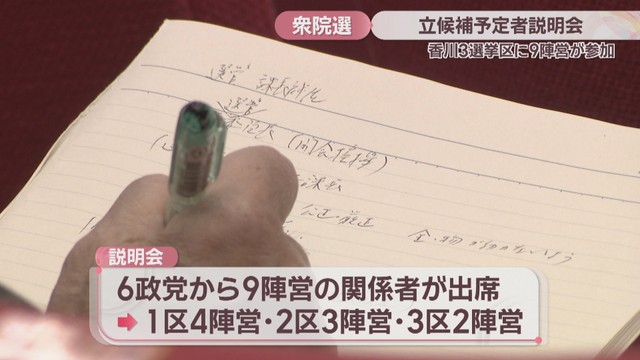 衆院選
立候補予定者説明会
香川3選挙区に9陣営が参加
選管
(開会挨拶)
公正・厳正
説明会
6政党から9陣営の関係者が出席
➡1区4陣営・2区3陣営・3区2陣営